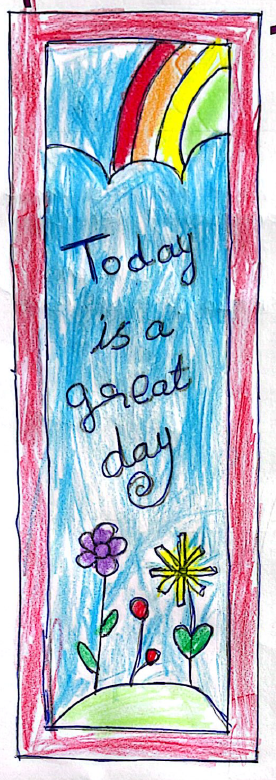 Today
is a
great
day